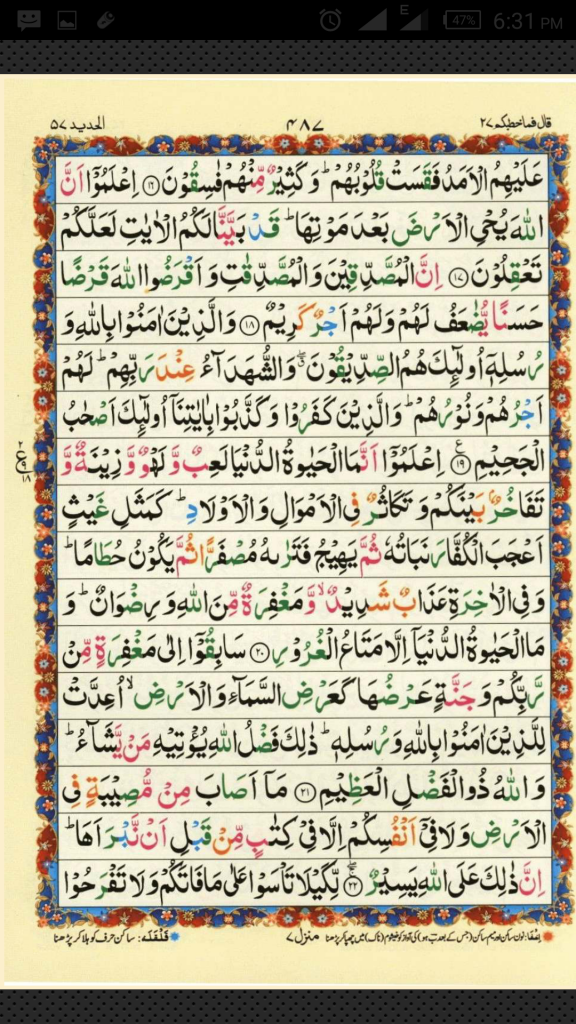 47%
6:31 PM
الحديد ٥٧
٤٨٧
قال فماخطبكم ٢٧
عَلَيْهِمُ الْاَمَدُ فَقَسَتْ قُلُوْبُهُمْ ؕ وَكَثِيْرٌ مِّنْهُمْ فٰسِقُوْنَ ﴿۱۶﴾ اِعْلَمُوْۤا اَنَّ
اللّٰهَ يُحْيِ الْاَرْضَ بَعْدَ مَوْتِهَا ؕ قَدْ بَيَّنَّا لَكُمُ الْاٰيٰتِ لَعَلَّكُمْ
تَعْقِلُوْنَ ﴿۱۷﴾ اِنَّ الْمُصَّدِّقِيْنَ وَالْمُصَّدِّقٰتِ وَاَقْرَضُوا اللّٰهَ قَرْضًا
حَسَنًا يُّضٰعَفُ لَهُمْ وَلَهُمْ اَجْرٌ كَرِيْمٌ ﴿۱۸﴾ وَالَّذِيْنَ اٰمَنُوْا بِاللّٰهِ وَ
رُسُلِهٖۤ اُولٰٓئِكَ هُمُ الصِّدِّيْقُوْنَ ۖ وَالشُّهَدَآءُ عِنْدَ رَبِّهِمْ ؕ لَهُمْ
اَجْرُهُمْ وَنُوْرُهُمْ ؕ وَالَّذِيْنَ كَفَرُوْا وَكَذَّبُوْا بِاٰيٰتِنَاۤ اُولٰٓئِكَ اَصْحٰبُ
الْجَحِيْمِ ﴿۱۹﴾ اِعْلَمُوْۤا اَنَّمَا الْحَيٰوةُ الدُّنْيَا لَعِبٌ وَّلَهْوٌ وَّزِيْنَةٌ وَّ
تَفَاخُرٌۢ بَيْنَكُمْ وَتَكَاثُرٌ فِى الْاَمْوَالِ وَالْاَوْلَادِ ؕ كَمَثَلِ غَيْثٍ
اَعْجَبَ الْكُفَّارَ نَبَاتُهٗ ثُمَّ يَهِيْجُ فَتَرٰىهُ مُصْفَرًّا ثُمَّ يَكُوْنُ حُطَامًا ؕ
وَفِى الْاٰخِرَةِ عَذَابٌ شَدِيْدٌ ۙ وَّمَغْفِرَةٌ مِّنَ اللّٰهِ وَرِضْوَانٌ ؕ وَ
مَا الْحَيٰوةُ الدُّنْيَاۤ اِلَّا مَتَاعُ الْغُرُوْرِ ﴿۲۰﴾ سَابِقُوْۤا اِلٰى مَغْفِرَةٍ مِّنْ
رَّبِّكُمْ وَجَنَّةٍ عَرْضُهَا كَعَرْضِ السَّمَآءِ وَالْاَرْضِ ۙ اُعِدَّتْ
لِلَّذِيْنَ اٰمَنُوْا بِاللّٰهِ وَرُسُلِهٖ ؕ ذٰلِكَ فَضْلُ اللّٰهِ يُؤْتِيْهِ مَنْ يَّشَآءُ ؕ
وَاللّٰهُ ذُو الْفَضْلِ الْعَظِيْمِ ﴿۲۱﴾ مَاۤ اَصَابَ مِنْ مُّصِيْبَةٍ فِى
الْاَرْضِ وَلَا فِىْۤ اَنْفُسِكُمْ اِلَّا فِىْ كِتٰبٍ مِّنْ قَبْلِ اَنْ نَّبْرَاَهَا ؕ
اِنَّ ذٰلِكَ عَلَى اللّٰهِ يَسِيْرٌ ﴿۲۲﴾ لِّكَيْلَا تَاْسَوْا عَلٰى مَا فَاتَكُمْ وَلَا تَفْرَحُوْا
منزل ۷
قلقلہ: ساکن حرف کو ہلا کر پڑھنا